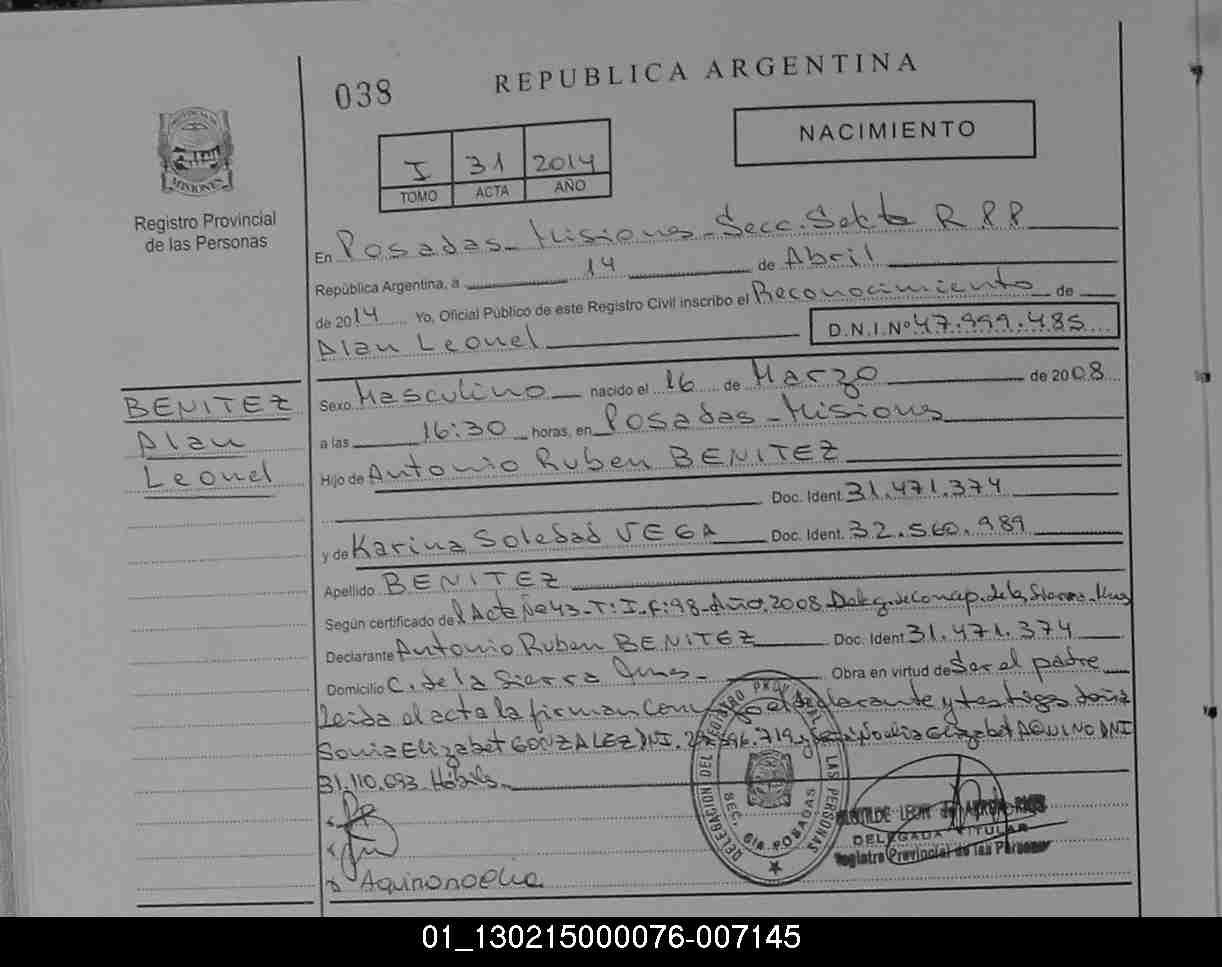 038
REPUBLICA ARGENTINA
NACIMIENTO
I 31 2014
TOMO ACTA AÑO
MISIONES
Registro Provincial
de las Personas
En Posadas - Misiones - Secc. Sexta R.P.P
República Argentina, a 14 de Abril
de 2014 Yo, Oficial Público de este Registro Civil inscribo el Reconocimiento de
Alan Leonel D.N.I.Nº 47.999.485
BENITEZ
Alan
Leonel
Sexo Masculino nacido el 16 de Marzo de 2008
a las 16:30 horas, en Posadas - Misiones
Hijo de Antonio Ruben BENITEZ
Doc. Ident. 31.471.374
y de Karina Soledad VEGA Doc. Ident. 32.560.989
Apellido BENITEZ
Según certificado del Acta Nº 43 - T: I - F: 98 - Año 2008 Deleg. de Concep. de la Sierra - Mnes
Declarante Antonio Ruben BENITEZ Doc. Ident 31.471.374
Domicilio C. de la Sierra Mnes - Obra en virtud de Ser el padre
Leida el acta la firman el declarante y testigos doña
Sonia Elizabet GONZALEZ DNI. 719 y Noelia Elizabet AQUINO DNI
31.110.693 Hábiles
Aquino noelia
DELEGACION DEL REGISTRO PROVINCIAL DE LAS PERSONAS
SEC. 6ta POSADAS
LEON de
DELEGADA TITULAR
Registro Provincial de las Personas
01_130215000076-007145